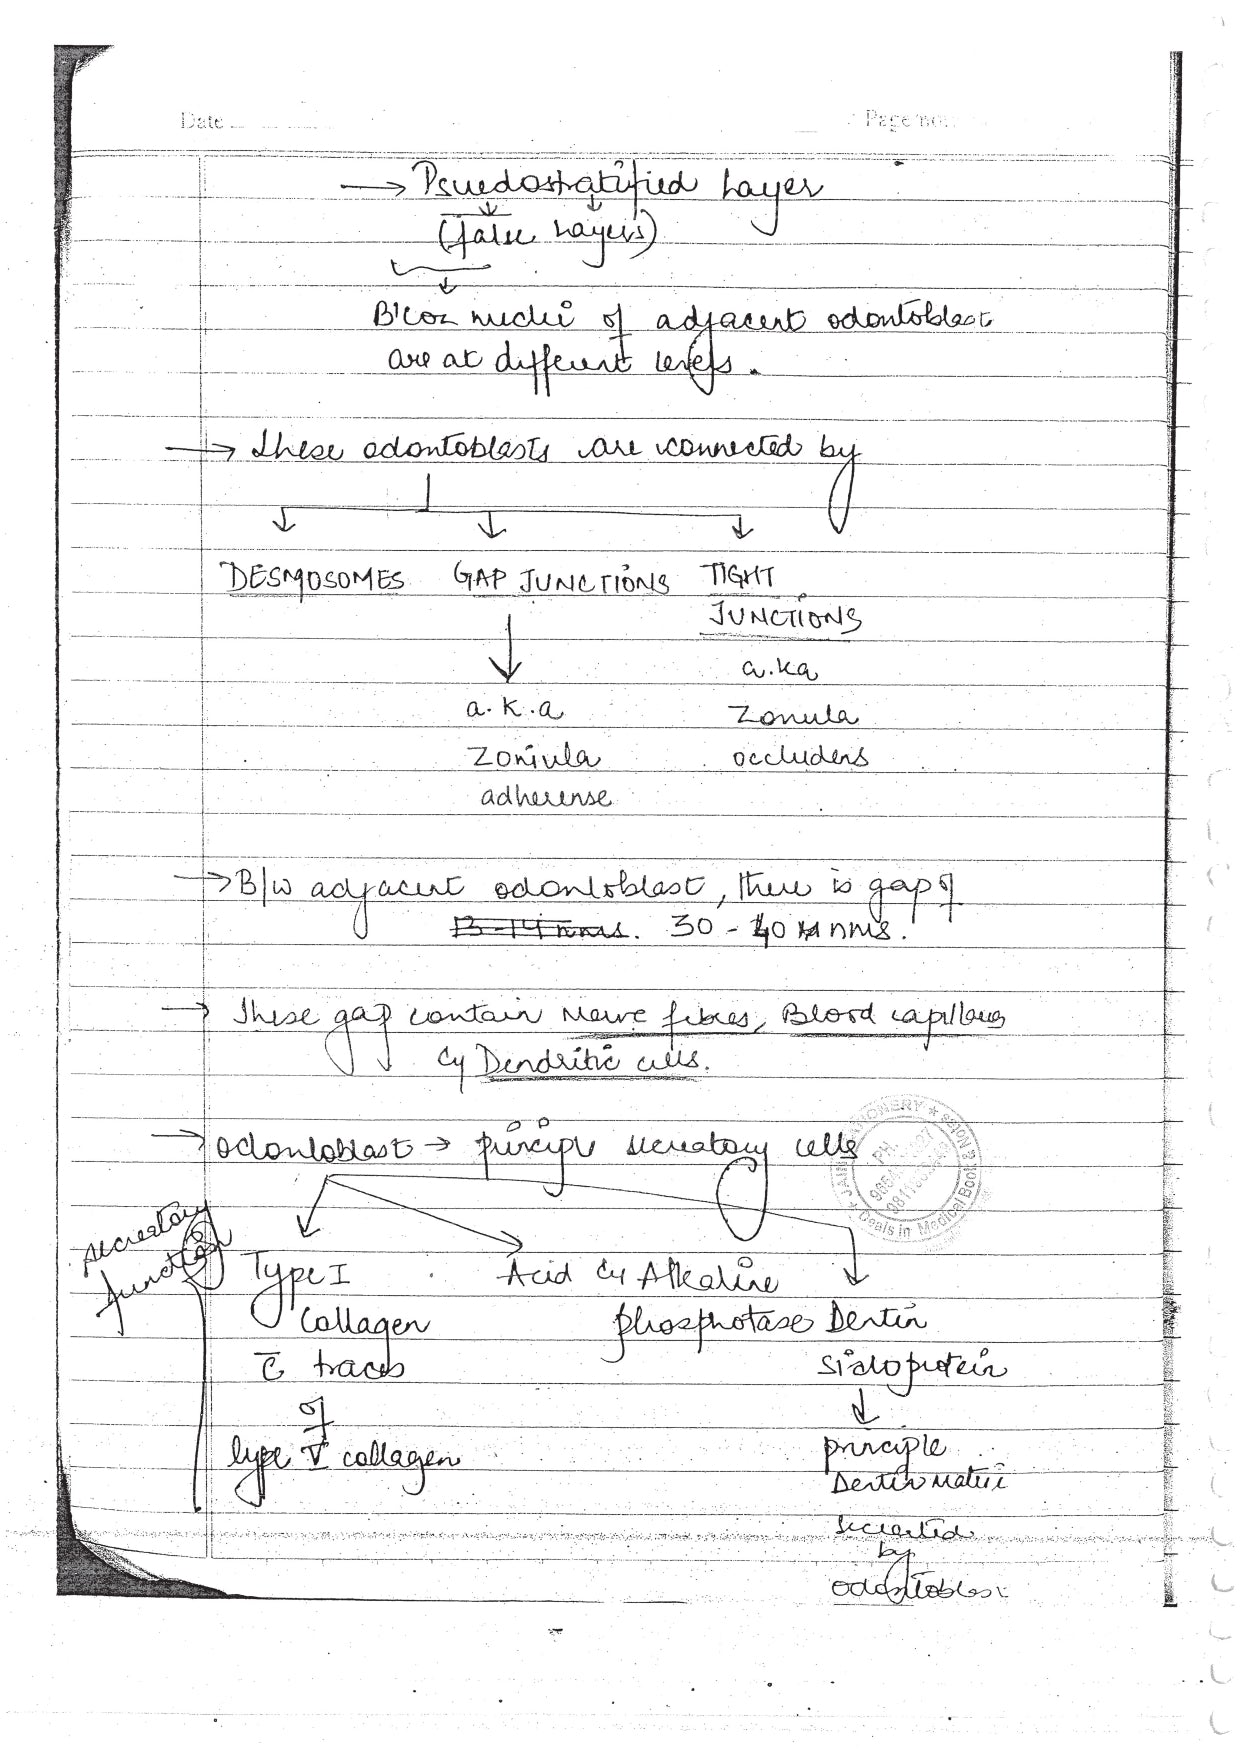 Date
Page no.
→ Psuedostratified Layer
(false Layers)
B'coz nuclei of adjacent odontoblast
are at different levels.
→ These odontoblasts are connected by
DESMOSOMES GAP JUNCTIONS TIGHT
JUNCTIONS
a.ka
a.k.a Zonula
Zonula occludens
adherense
→ B/w adjacent odontoblast, there is gap of
13-14 nms. 30 - 40 nms.
→ These gap contain Nerve fibres, Blood capillaries
& Dendritic cells.
→ odontoblast → principle secreatory cells
STATIONERY ★
JAIN
PH.
Deals in Medical Book & Notes
secreatory
function
Type I Acid & Alkaline
Collagen phosphotase Dentin
c̄ traces sialoprotein
of
type V collagen principle
Dentin matrix
secreated
by
odontoblast